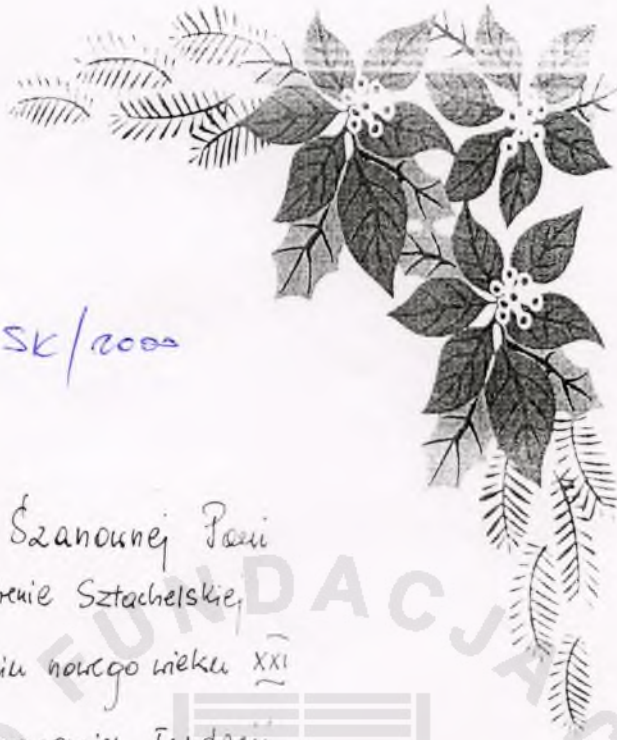 SK/2000
Szanownej Pani
renie Sztachelskiej
niu nowego wieku XXI
FUNDACJA